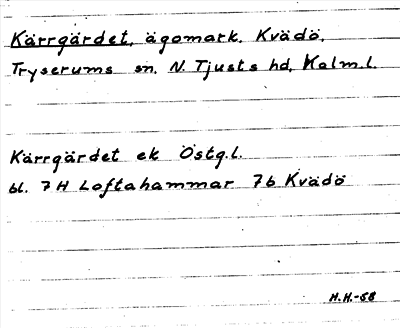 Kärrgärdet, ägomark, Kvädö,
Tryserums sn, N. Tjusts hd, Kalm.l.
Kärrgärdet ek Östg.l.
bl. 7 H Loftahammar 7b Kvädö
H.H.-68